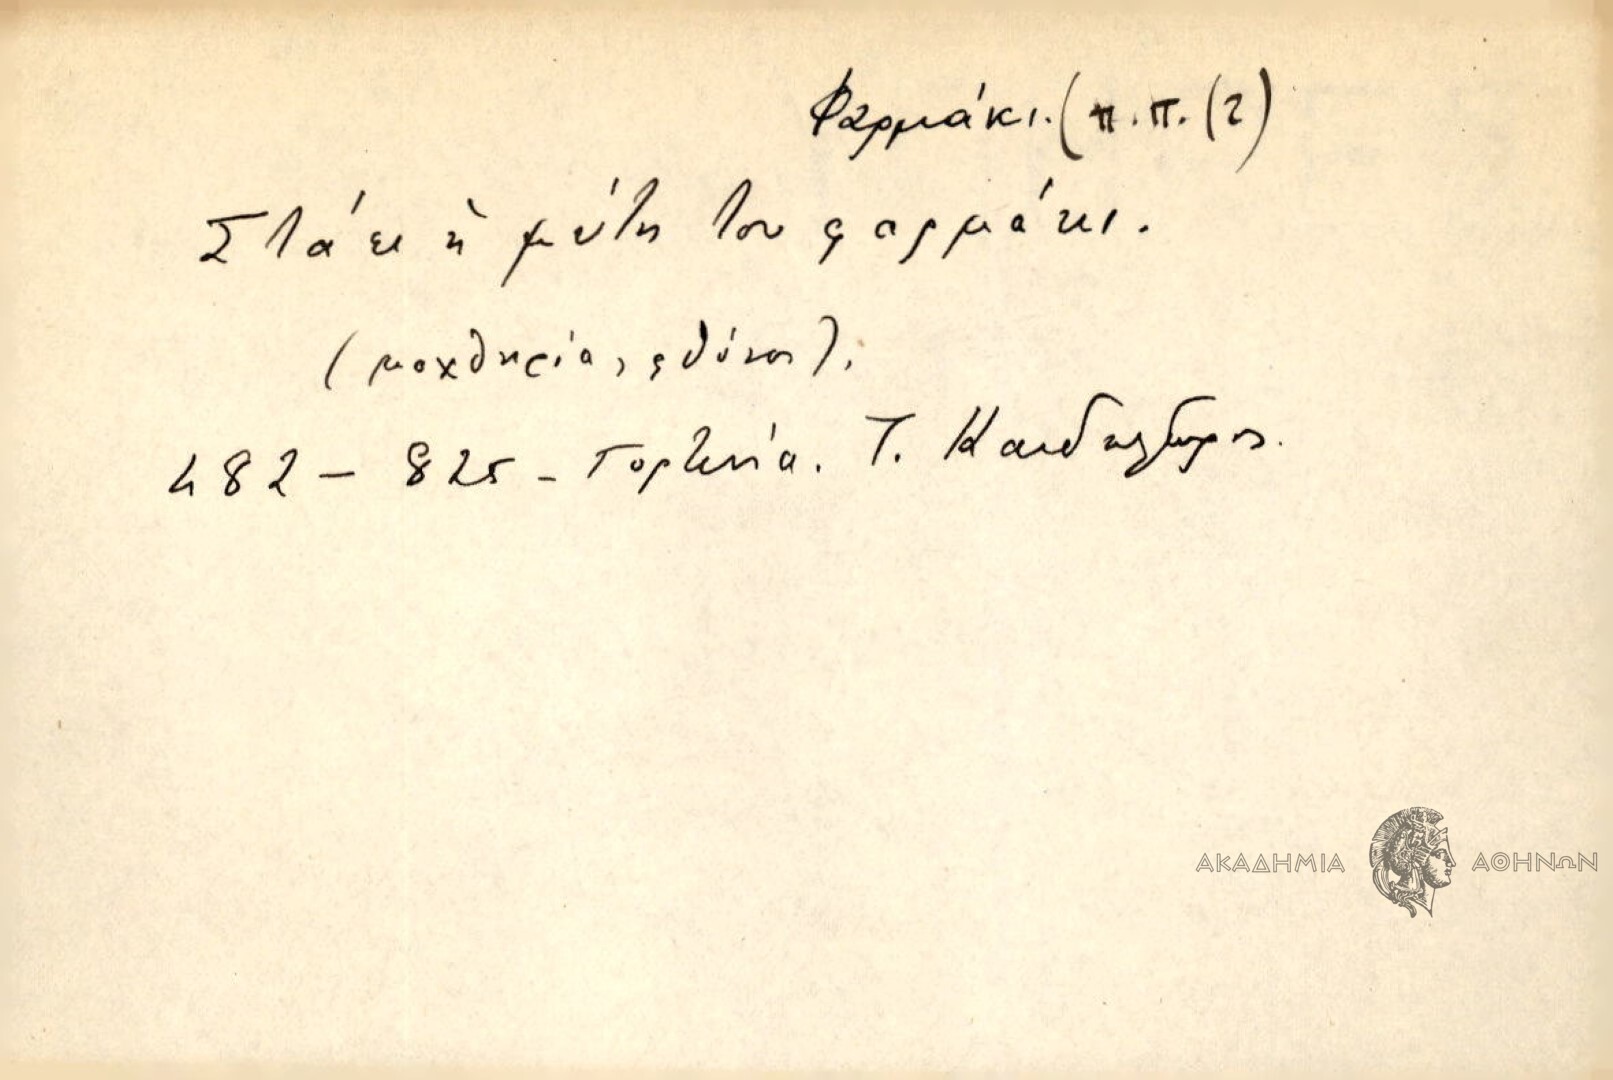 Φαρμάκι. (π.π. (2)
Στάει ἡ μύτη του φαρμάκι.
(μοχθηρία, φθόνος).
482 – 825 – Γορτυνία. Τ. Κανδηλῶρος.
ΑΚΑΔΗΜΙΑ ΑΘΗΝΩΝ